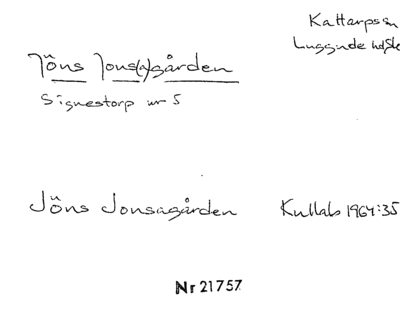 Kattarps sn
Luggude hd, Sk
Jöns Jons(a)gården
Signestorp nr 5
Jöns Jonsagården Kullab 1964:35
Nr 21757